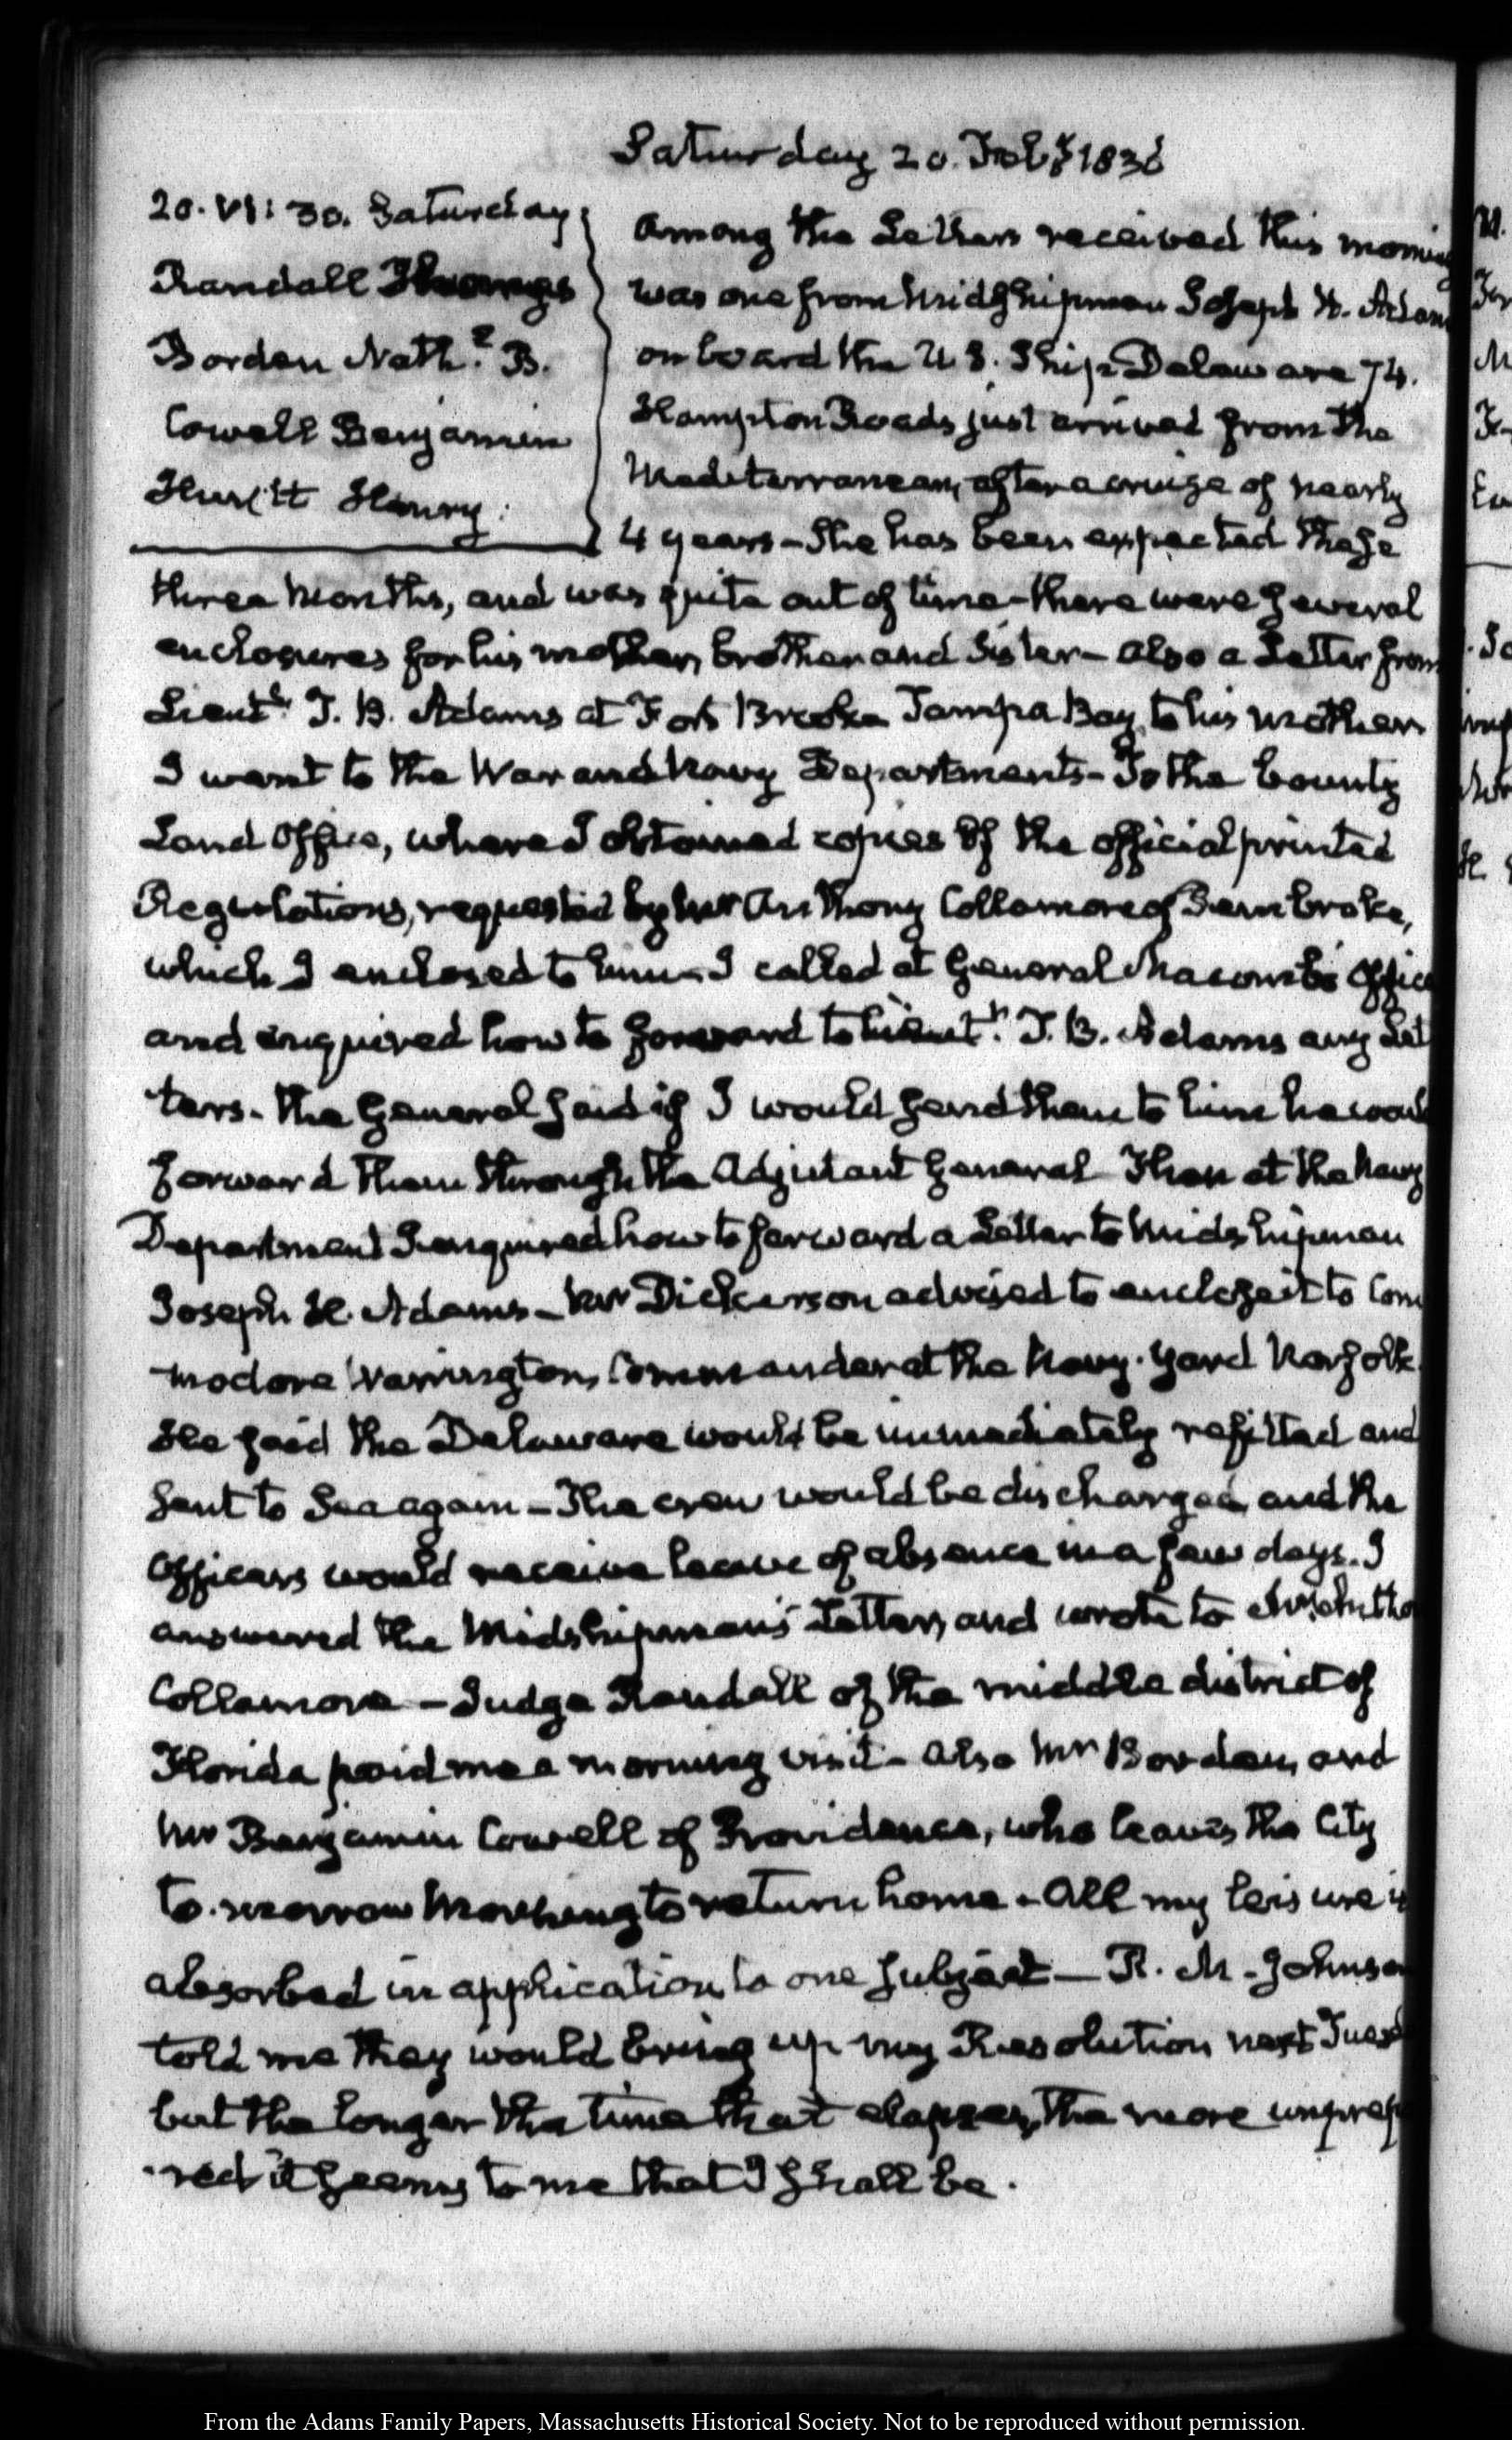 Saturday 20. Feby 1836
20. VI: 30. Saturday
Randall Thomas
Borden Nathl. B.
Cowell Benjamin
Henry
Among the Letters received this morning
was one from Midshipman Joseph H. Adams
on board the U.S. Ship Delaware 74.
Hampton Roads just arrived from the
Mediterranean, after a cruize of nearly
4 years - She has been expected these
three months, and was quite out of time - there were several
enclosures for his mother, brother and Sister - also a Letter from
Lieutt. T. B. Adams at Fort Brooke Tampa Bay, to his mother
I went to the War and Navy Departments - To the Bounty
Land Office, where I obtained copies of the official printed
Regulations, requested by Mr Anthony Collamore of Pembroke,
which I enclosed to him - I called at General Macomb's Office
and enquired how to forward to Lieutt. T. B. Adams any Let
ters - the General said if I would send them to him he would
forward them through the Adjutant General Then at the Navy
Department I enquired how to forward a Letter to Midshipman
Joseph H. Adams - Mr Dickerson advised to enclose it to Com
modore Warrington, Commander at the Navy-Yard Norfolk
He said the Delaware would be immediately refitted and
sent to Sea again - The crew would be discharged and the
Officers would receive leave of absence in a few days. I
answered the Midshipman's Letter, and wrote to
Collamore - Judge Randall of the middle district of
Florida paid me a morning visit - also Mr Borden, and
Mr Benjamin Cowell of Providence, who leaves the City
to-morrow Morning to return home - All my leisure is
absorbed in application to one subject - R. M. Johnson
told me they would bring up my Resolution next Tuesd
but the longer the time that elapses, the more unprepa
red it seems to me that I shall be.
From the Adams Family Papers, Massachusetts Historical Society. Not to be reproduced without permission.